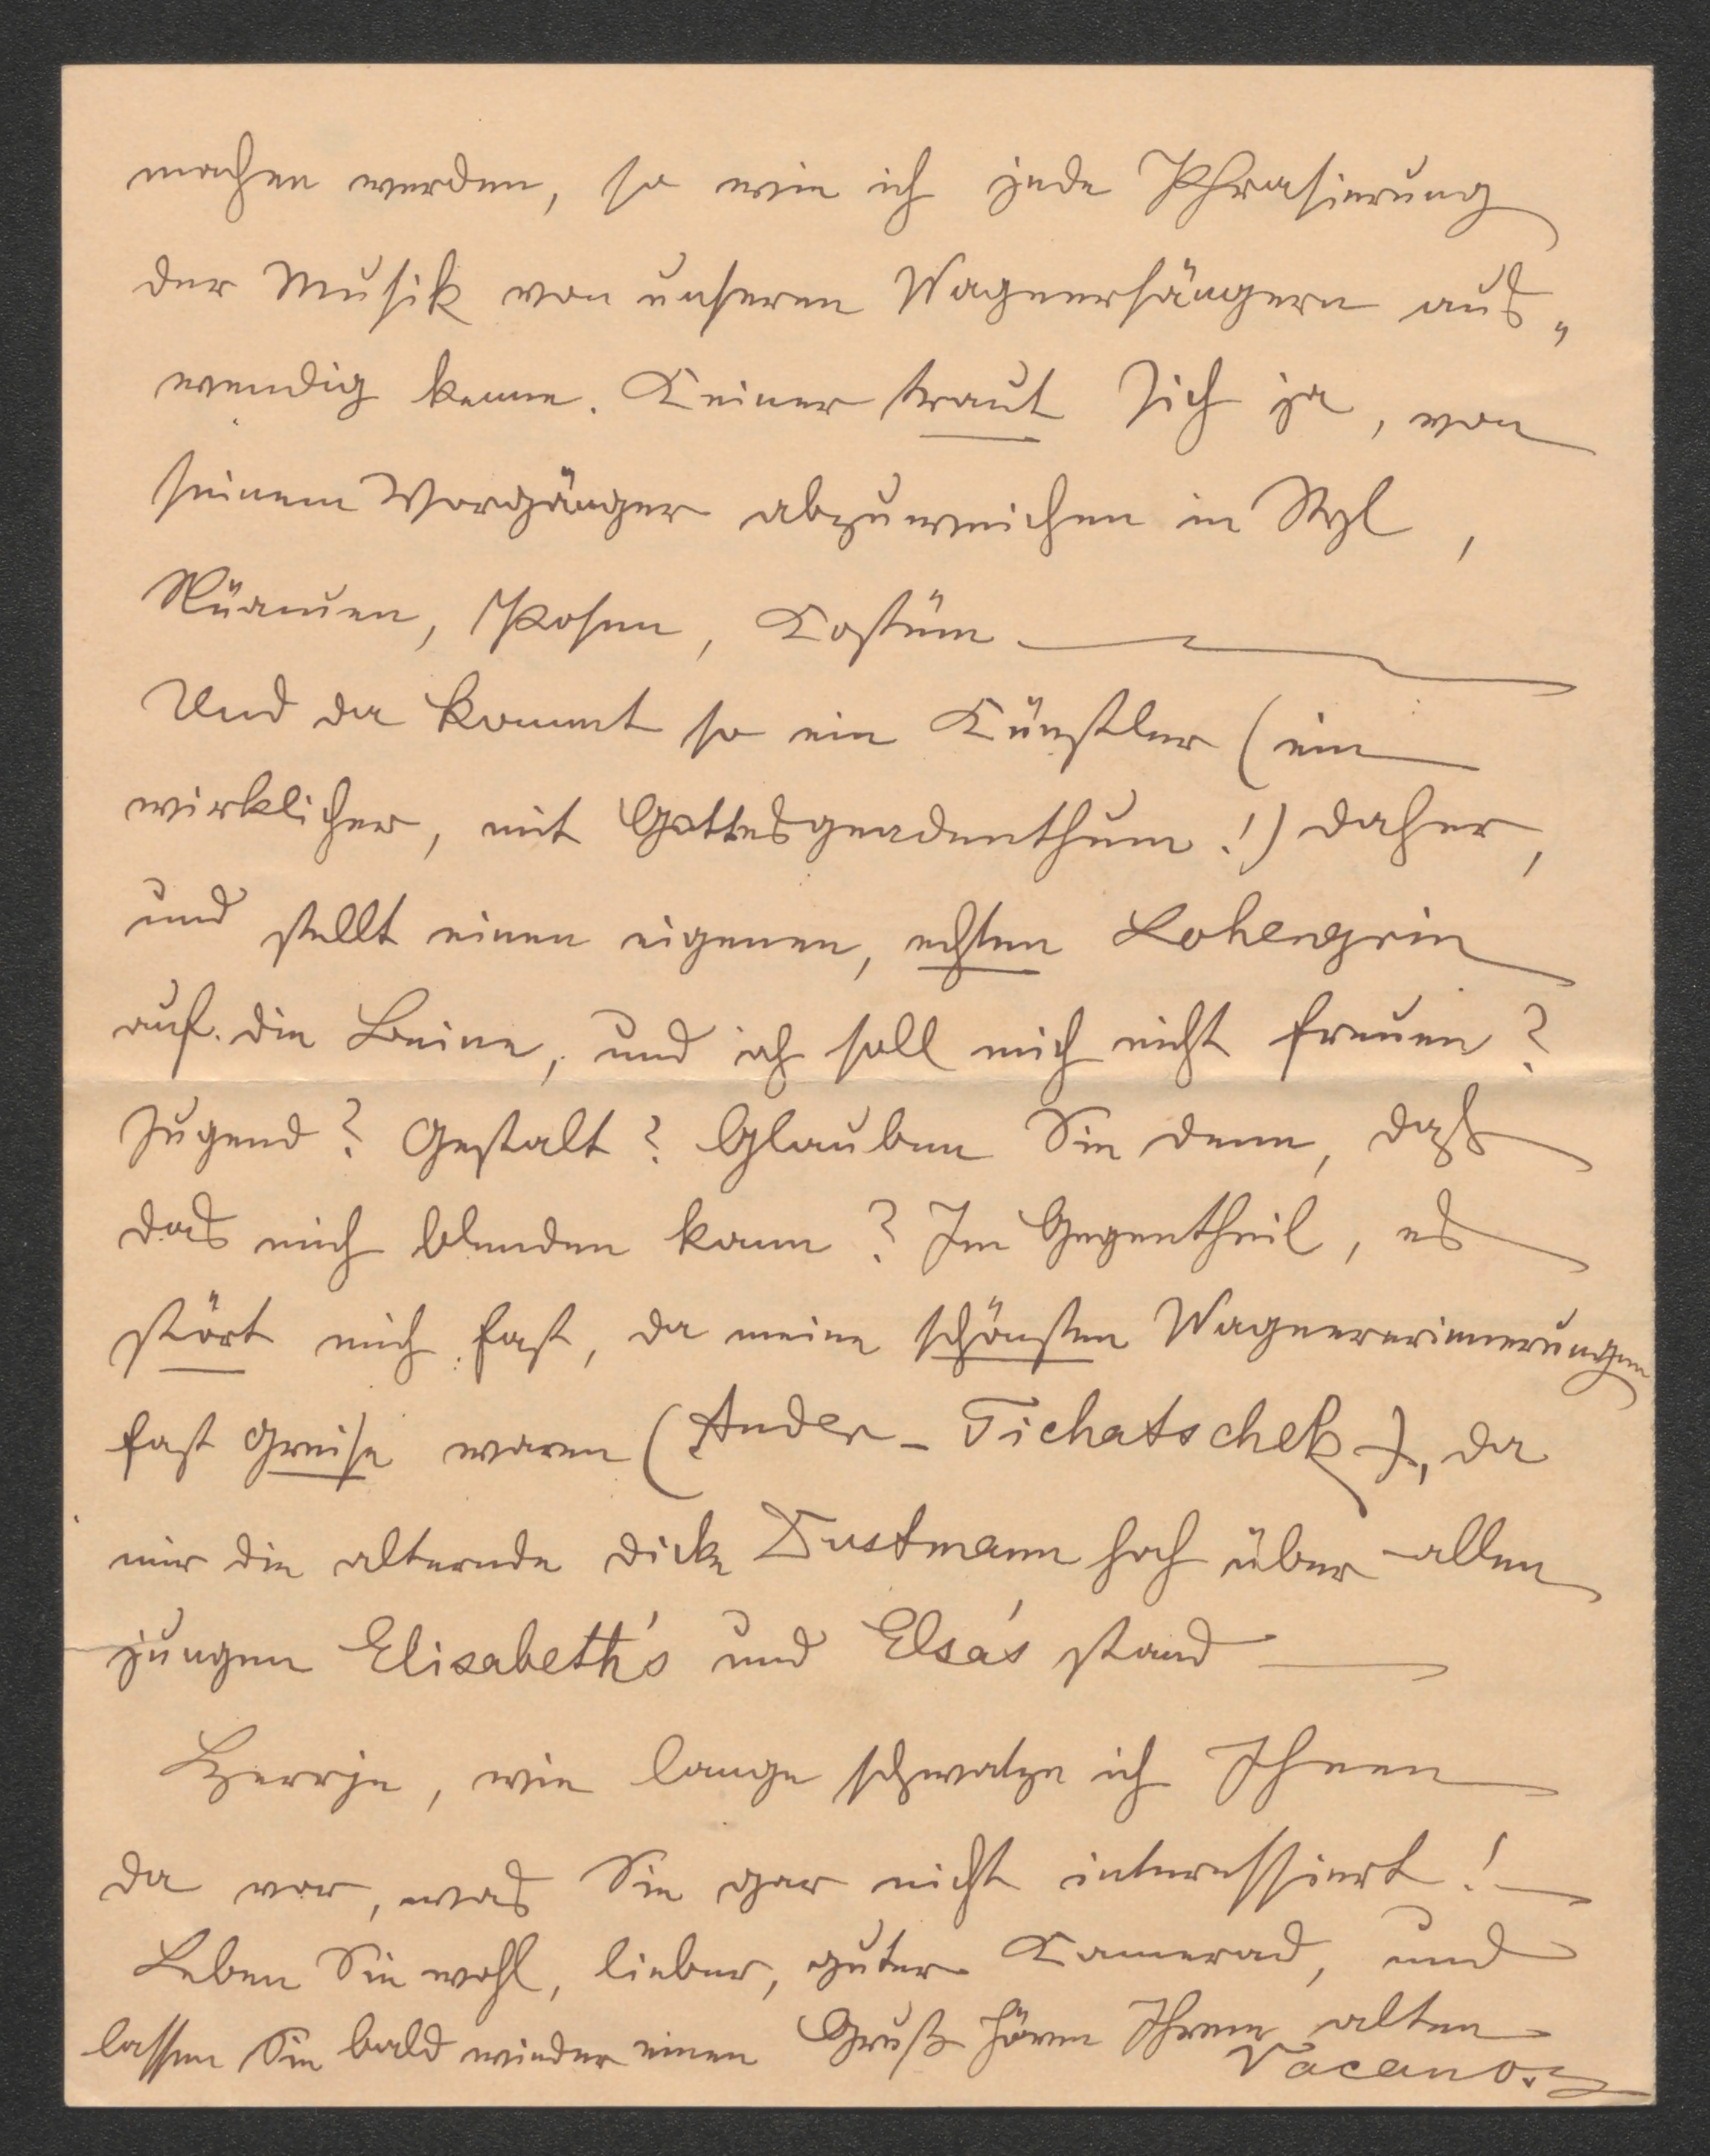 machen werden, so wie ich jede Phrasierung
der Musik von unseren Wagnersängern aus„
wendig kenne. Keiner traut sich ja, von
seinem Vorgänger abzuweichen in Styl,
Nüancen, Posen, Kostüm —
Und da kommt so ein Künstler (ein
wirklicher, mit Gottesgnadenthum!) daher,
und stellt einen eigenen, echten Lohengrin
auf die Beine, und ich soll mich nicht freuen?
Jugend? Gestalt? Glauben Sie denn, daß
das mich blenden kann? Im Gegentheil, es
stört mich fast, da meine schönsten Wagnererinnerungen
fast Greise waren (Ander - Tichatschek -), da
mir die alternde dicke Dustmann hoch über allen
jungen Elisabeth's und Elsa's stand —
Herrje, wie lange schwatze ich Ihnen
da vor, was Sie gar nicht interessiert! —
Leben Sie wohl, lieber, guter Kamerad, und
lassen Sie bald wieder einen Gruß hören Ihrem alten
Vacano.